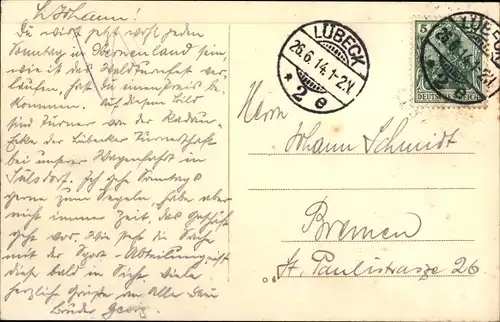 L. Johann!
Du wirst jetzt wohl jeden
Sonntag in Oberneuland sein,
wie ist das Waldturnfest ver-
laufen, hast Du einen Preis be-
kommen. Auf diesem Bild
sind Turner von der
Riege der Lübecker Turnerschaft
bei unserer Wagenfahrt in
Sülsdorf. Ich gehe Sonntags
gerne zum Segeln, habe aber
nicht immer Zeit, das Geschäft
geht vor. Wie steht die Sache
mit der Sport-Abteilung, ist
diese bald in Sicht. Viele
herzliche Grüße an Alle Dein
Bruder Georg.
LÜBECK
26.6.14.1-2N
* 2 e
5
DEUTSCHES REICH
LÜBECK
26.6.14.1-2N
* 2 e
Herrn
Johann Schmidt
Bremen
St. Paulistrasze 26